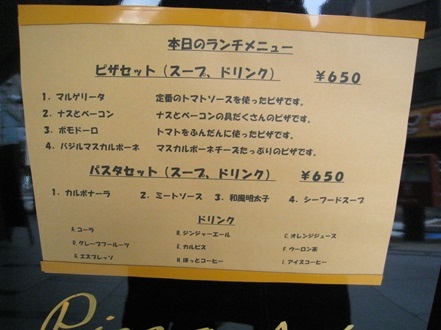 本日のランチメニュー
ピザセット（スープ、ドリンク） ￥650
1. マルゲリータ 定番のトマトソースを使ったピザです。
2. ナスとベーコン ナスとベーコンの具だくさんのピザです。
3. ポモドーロ トマトをふんだんに使ったピザです。
4. バジルマスカルポーネ マスカルポーネチーズたっぷりのピザです。
パスタセット（スープ、ドリンク） ￥650
1. カルボナーラ 2. ミートソース 3. 和風明太子 4. シーフードスープ
ドリンク
A. コーラ B. ジンジャーエール C. オレンジジュース
D. グレープフルーツ E. カルピス F. ウーロン茶
G. エスプレッソ H. ほっとコーヒー I. アイスコーヒー